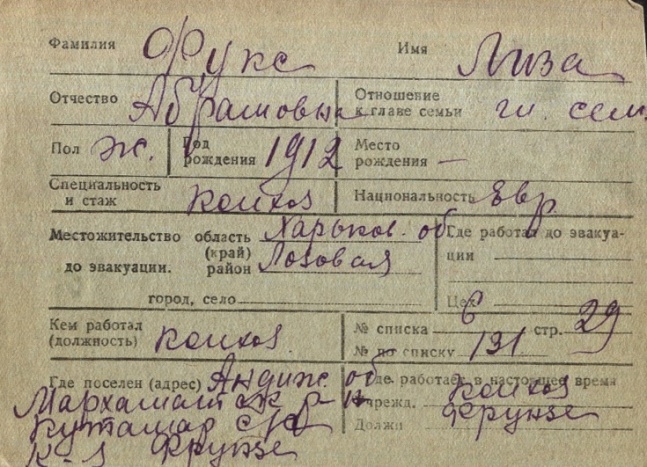 Фамилия Фукс Имя Лиза
Отчество Абрамовна Отношение к главе семьи гл. сем.
Пол Ж. Год рождения 1912 Место рождения —
Специальность и стаж колхоз Национальность Евр.
Местожительство область Харьков. об Где работал до эвакуа-
(край)
до эвакуации. район Лозовая ции
город, село Цех
Кем работал (должность) колхоз № списка 6 стр. 29
№ по списку 131
Где поселен (адрес) Андиж. об Где работает в настоящее время колхоз
Мархамат р-н Учрежд. Фрунзе
с/с Должн
к-з Фрунзе